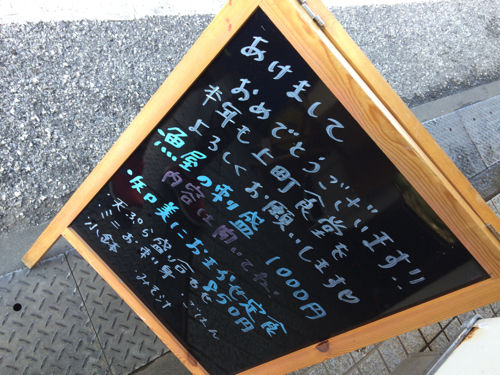 あけまして
おめでとうございます!!
本年も上町食堂を
よろしくお願いします♡
魚屋の刺盛 1000円
内容は聞いてね
におまかせ定食
850円
天ぷら盛り合せ
ミニお刺身 ごはん
小鉢 みそ汁